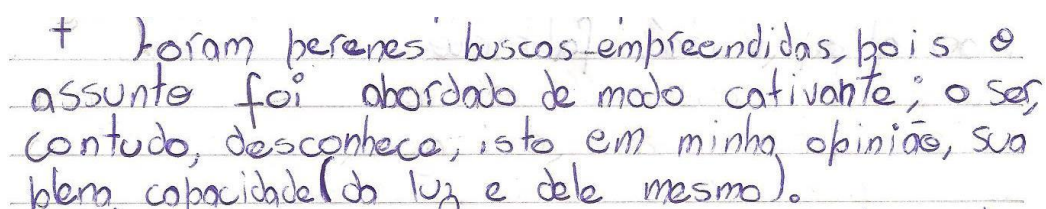 † Foram perenes buscas empreendidas, pois o
assunto foi abordado de modo cativante; o ser,
contudo, desconhece, isto em minha opinião, sua
plena capacidade (da luz e dele mesmo).